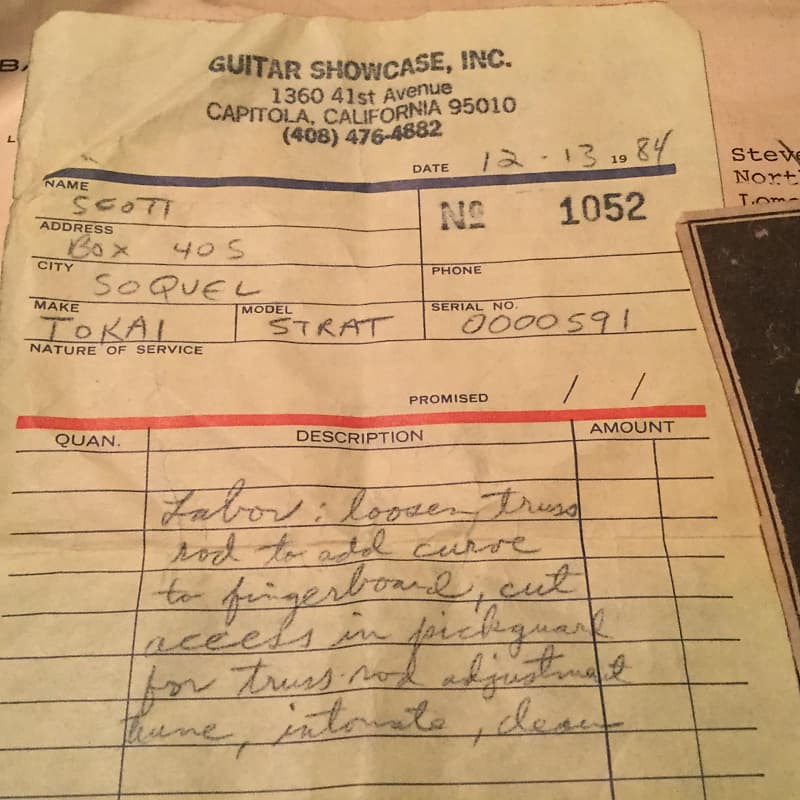 GUITAR SHOWCASE, INC.
1360 41st Avenue
CAPITOLA, CALIFORNIA 95010
(408) 476-4882
DATE 12-13 19 84
NAME SCOTT
Nº 1052
ADDRESS BOX 405
CITY SOQUEL
PHONE
MAKE TOKAI MODEL STRAT SERIAL NO. 0000591
NATURE OF SERVICE
PROMISED / /
QUAN. DESCRIPTION AMOUNT
Labor: loosen truss
rod to add curve
to fingerboard, cut
access in pickguard
for truss-rod adjustment
tune, intonate, clean